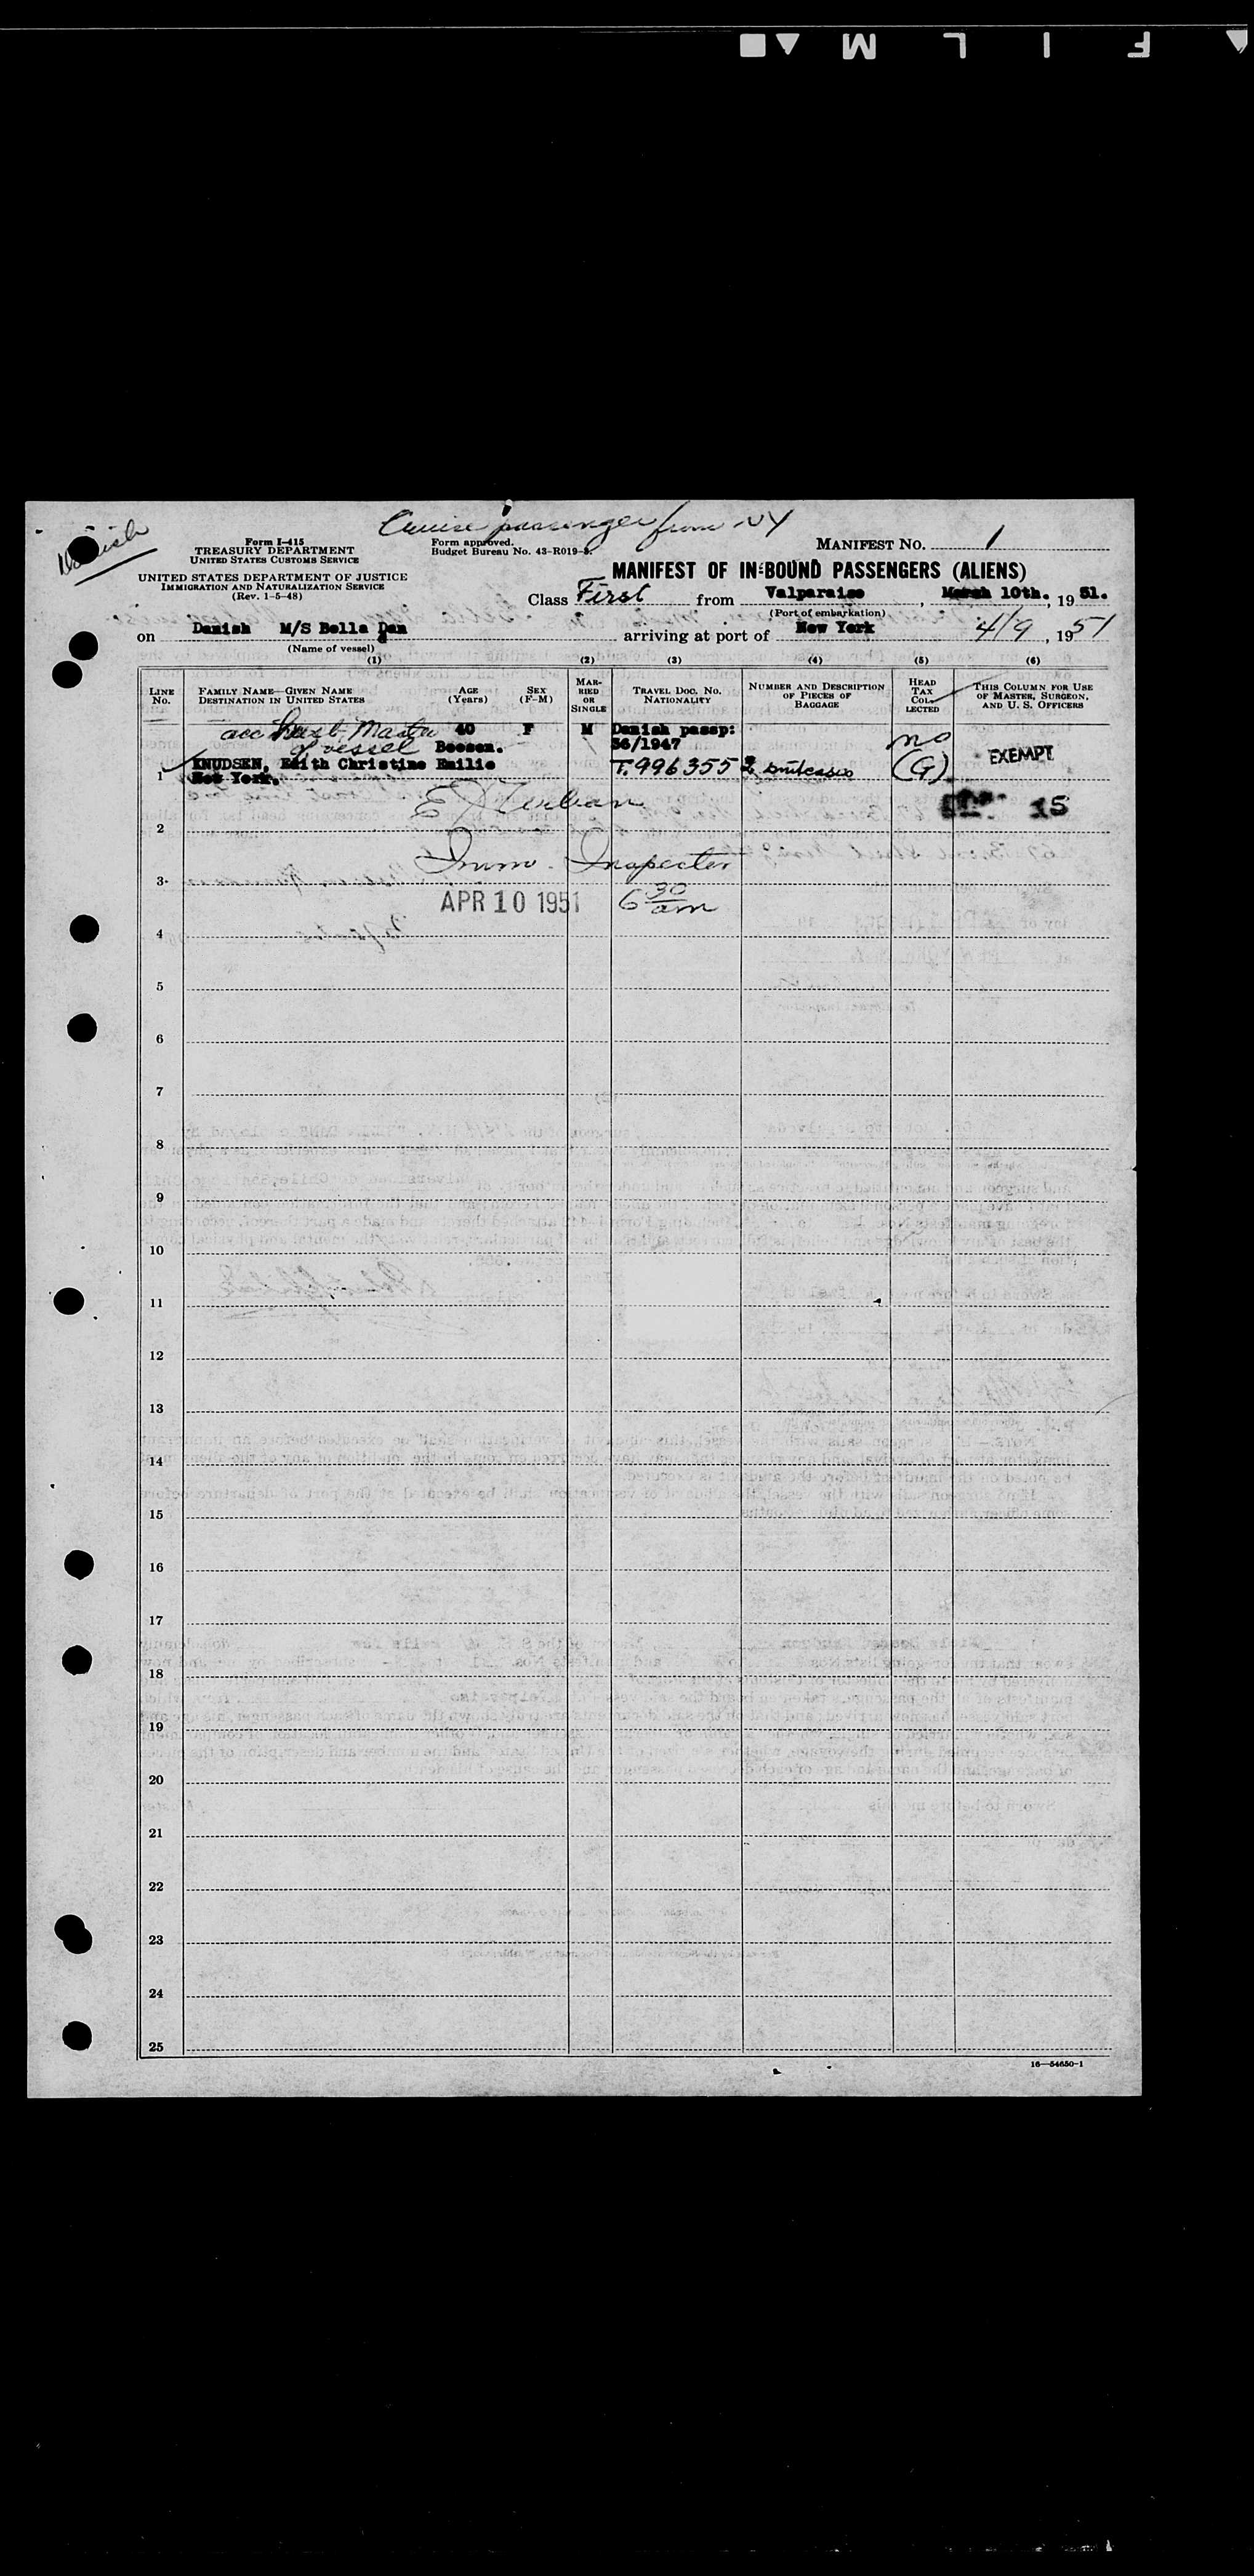 F I L M
Danish
Cruise passenger from NY
Form I-415
TREASURY DEPARTMENT
UNITED STATES CUSTOMS SERVICE
Form approved.
Budget Bureau No. 43-R019-3.
MANIFEST NO. 1
UNITED STATES DEPARTMENT OF JUSTICE
IMMIGRATION AND NATURALIZATION SERVICE
(Rev. 1-5-48)
MANIFEST OF IN-BOUND PASSENGERS (ALIENS)
Class First from Valparaiso, March 10th., 19 51.
(Port of embarkation)
on Danish M/S Bella Dan arriving at port of New York 4/9, 1951
(Name of vessel)
(1) (2) (3) (4) (5) (6)
LINE NO. FAMILY NAME—GIVEN NAME DESTINATION IN UNITED STATES AGE (Years) SEX (F-M) MARRIED OR SINGLE TRAVEL DOC. NO. NATIONALITY NUMBER AND DESCRIPTION OF PIECES OF BAGGAGE HEAD TAX COLLECTED THIS COLUMN FOR USE OF MASTER, SURGEON, AND U. S. OFFICERS
acc husb. Master 40 F M Danish passp:
of vessel Boesen. 56/1947 no EXEMPT
1 KNUDSEN, Edith Christine Emilie T. 996355 2 suitcases (G)
New York.
15
E
2
Imm. Inspector
3
APR 10 1951 6 30 am
4
5
6
7
8
9
10
11
12
13
14
15
16
17
18
19
20
21
22
23
24
25
16—54650-1